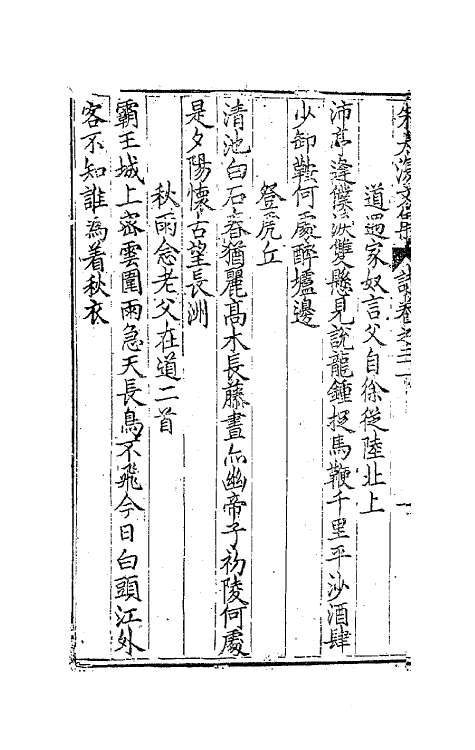 朱太復文集 詩卷之三 一
道遇家奴言父自徐從陸北上
沛亭逢僕淚雙懸見說龍鍾捉馬鞭千里平沙酒肆
少卸鞍何處醉壚邊
登虎丘
清池白石春猶麗高木長藤晝亦幽帝子初陵何處
是夕陽懷古望長洲
秋雨念老父在道二首
霸王城上密雲圍雨急天長鳥不飛今日白頭江外
客不知誰為着秋衣